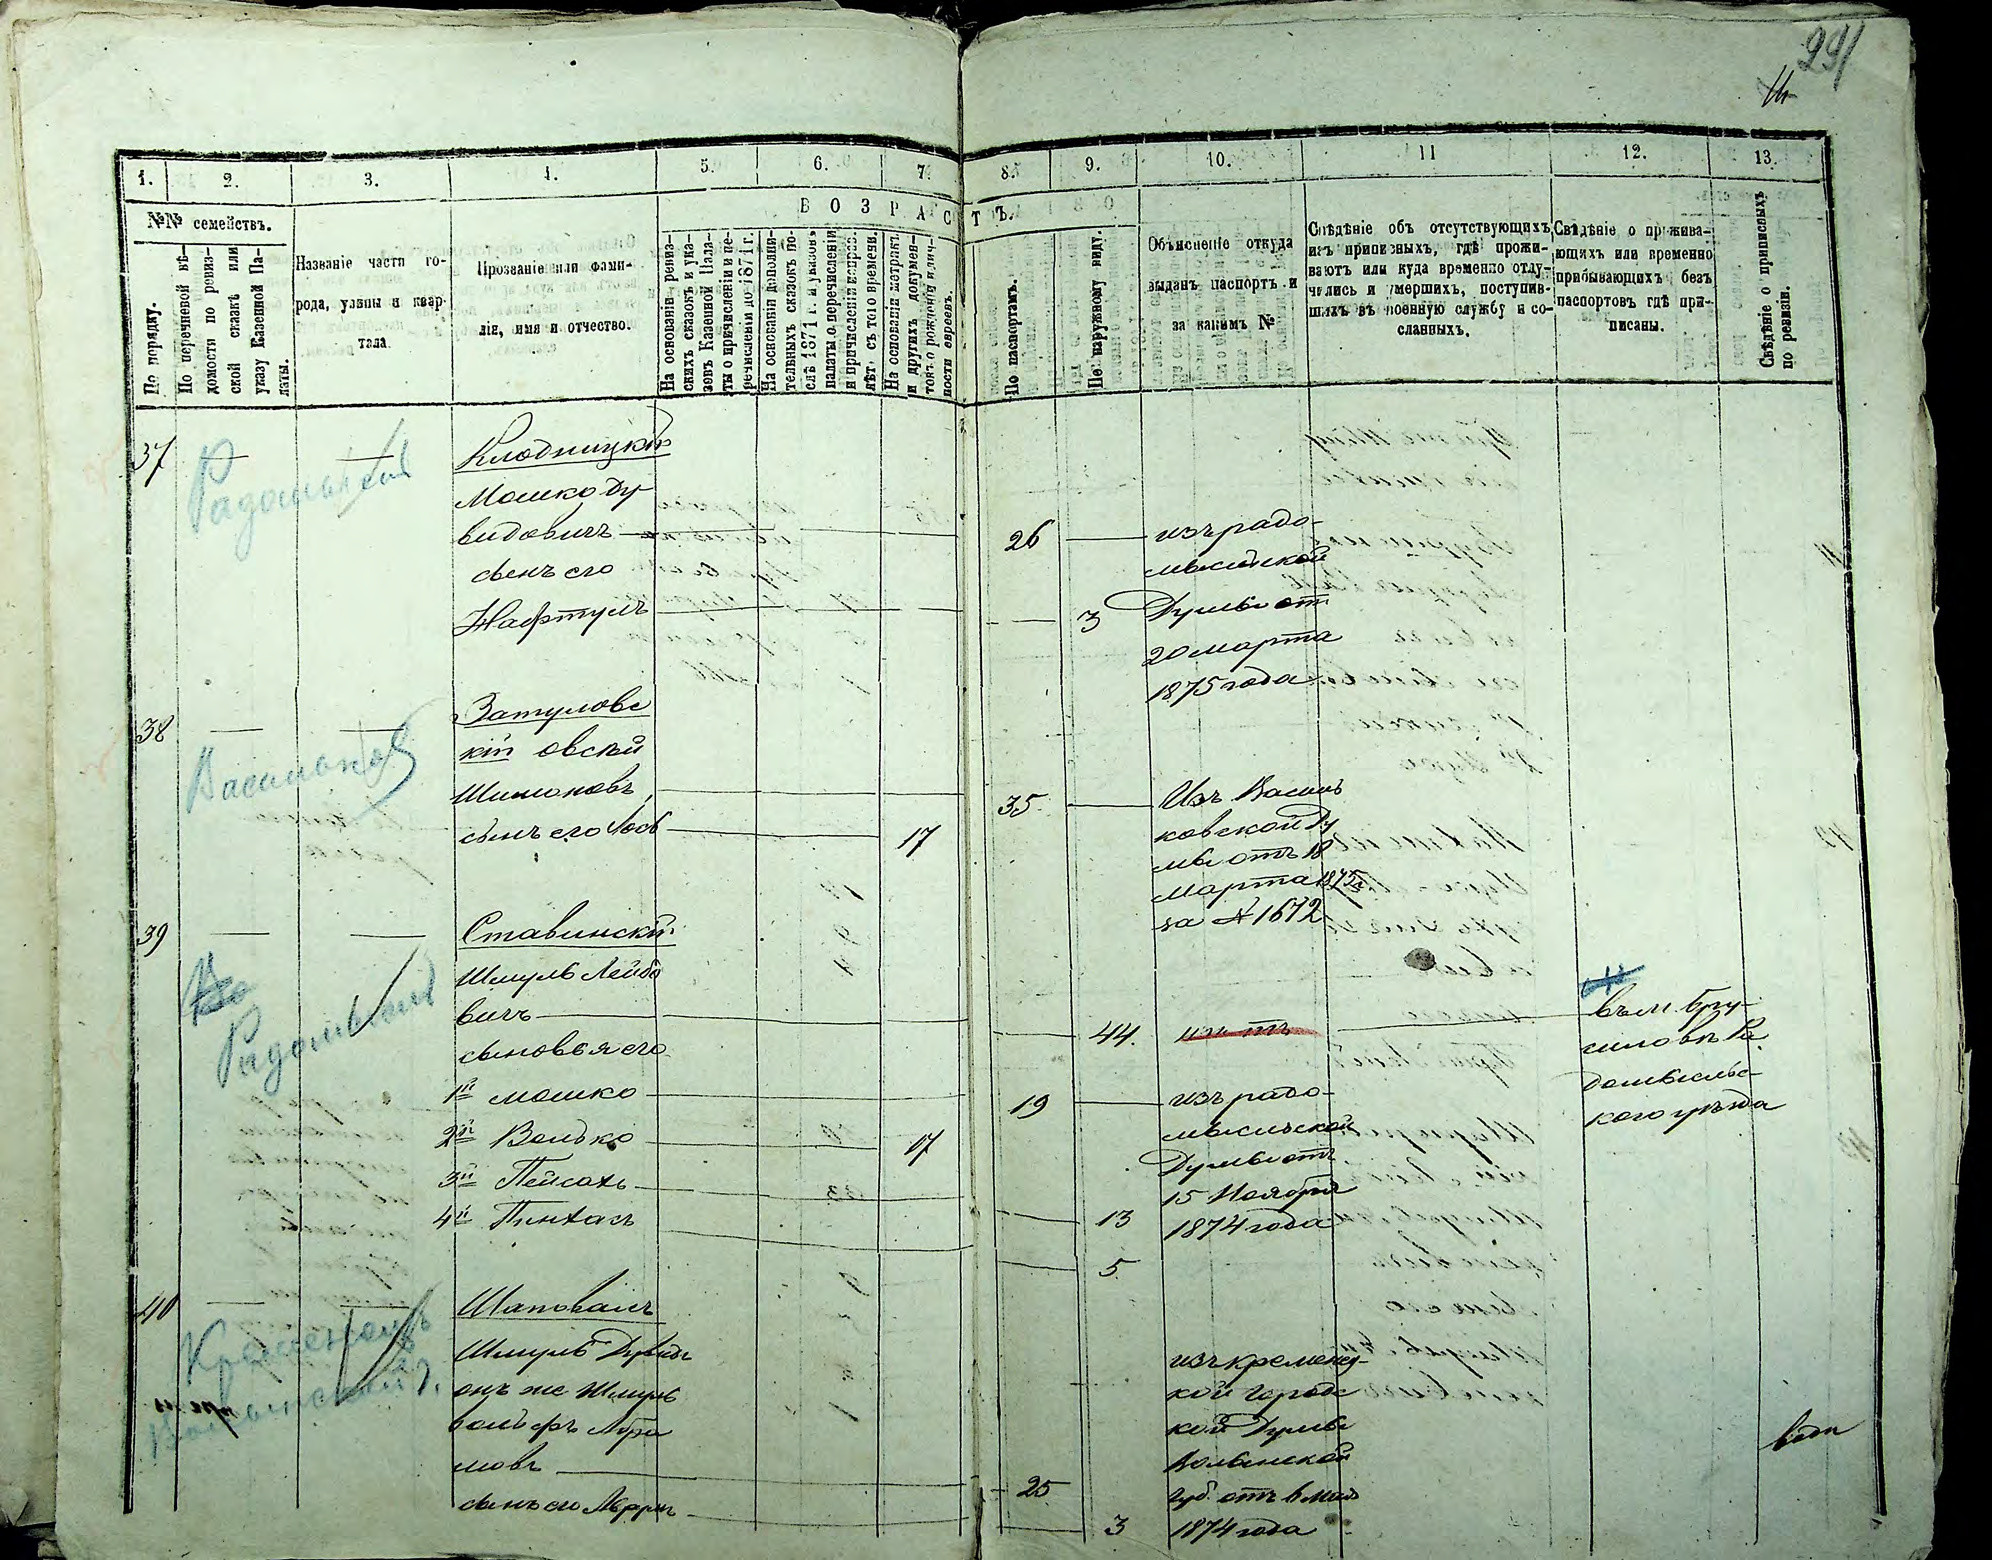 291
1. 2. 3. 4. 5. 6. 7. 8. 9. 10. 11 12. 13.
№№ семействъ.
ВОЗРАСТЪ.
По порядку.
По перечневой вѣ-
домости по ревиз-
ской сказкѣ или
указу Казенной Па-
латы.
Названіе части го-
рода, улицы и квар-
тала.
Прозваніе или фами-
лія, имя и отчество.
На основаніи ревиз-
скихъ сказокъ и ука-
зовъ Казенной Пала-
ты о причисленіи и пе-
речисленіи до 1871 г.
На основаніи дополни-
тельныхъ сказокъ по-
слѣ 1871 г. и указовъ
палаты о перечисленіи
и причисленіи и прос.
лѣтъ съ того времени.
На основаніи метрик.
и другихъ докумен-
товъ о рожденіи и лич-
ности евреевъ.
По паспортамъ.
По наружному виду.
Объясненіе откуда
выданъ паспортъ и
за какимъ №
Свѣдѣніе объ отсутствующихъ
изъ приписныхъ, гдѣ прожи-
ваютъ или куда временно отлу-
чились и умершихъ, поступив-
шихъ въ военную службу и со-
сланныхъ.
Свѣдѣніе о прожива-
ющихъ или временно
прибывающихъ безъ
паспортовъ гдѣ при-
писаны.
Свѣдѣніе о приписныхъ
по ревизіи.
37 — — Клодницкій
Радомысл
Мошко Ду-
видовичъ — 26 —
сынъ его
Нафтулъ — 3
изъ радо-
мысльской
Думы от
20 марта
1875 года
38 — — Затуловс
Васильков
кій овсѣй
Шимоновъ — 35 —
сынъ его Іось — 17
Изъ Василь
ковской Ду
мы отъ 18
марта 1875 г
за № 1672
39 — — Ставинскій
Радомысл
Шмуль Лейбо
вичъ — 44.
сыновья его
1й Мошко — 19 —
2й Волько — 17
3й Пейсахъ — 13
4й Пинхасъ — 5
изъ радо-
мысльской
Думы отъ
15 Ноября
1874 года
въ м. Бру-
силовѣ Ра
домысльс-
кого уѣзда
40 — — Шаповалъ
Кременецъ
Волынской г.
Шмуль Дувидъ
онъ же Шмуль
вольфъ Абра
мовъ — 25
сынъ его — 3
изъ кременец-
кой городс
кой Думы
Волынской
губ. отъ 6 мая
1874 года